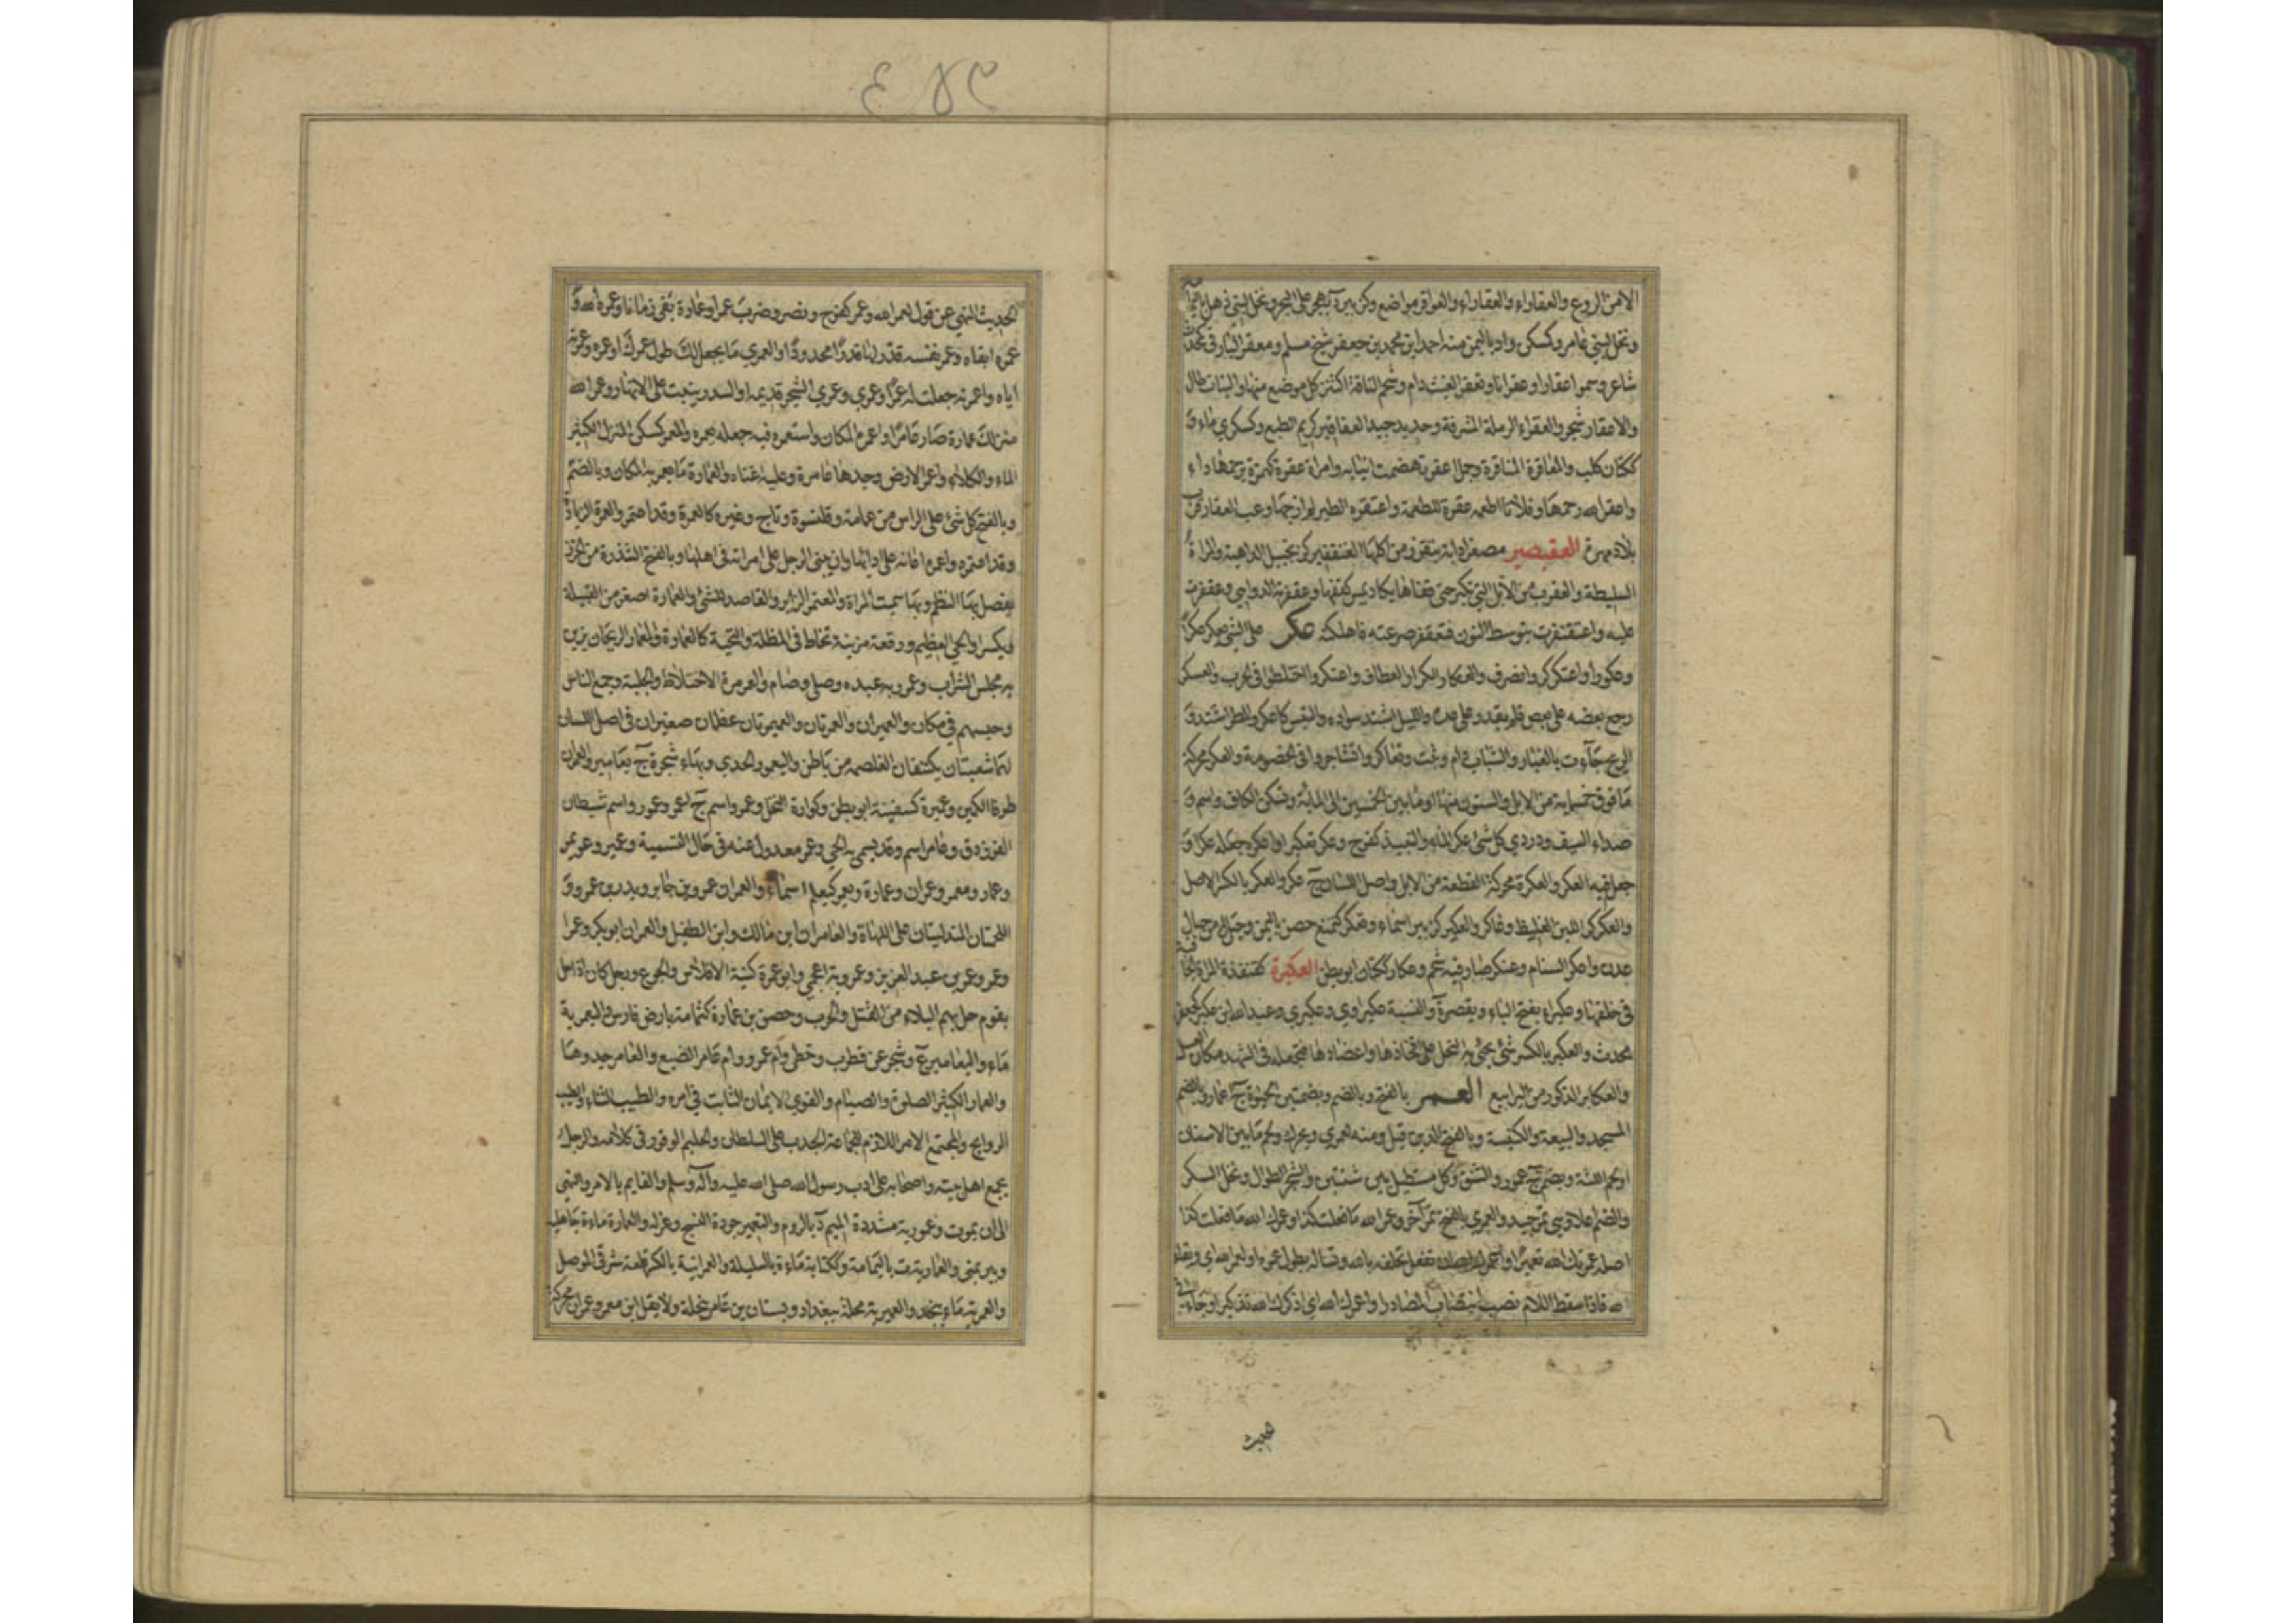 ٤٧٣
الامن الروع والعقاراء والعقاراء والعواقر مواضع وكزبير د بهجر على البحر ونخل لبني ذهل باليمامة
ونخل لبني عامر وكسكرى واد باليمن منه احمد ابن محمد بن جعفر شيخ مسلم ومعقر البارقي كمحدث
شاعر وسموا عقارا وعقرانا وتعقر الغيث دام وشحم الناقة اكتنز كل موضع منها والنبات طال
والاعقار شجر والعقراء الرملة المشرفة وحديد جيد العقاقير كريم الطبع وكسكرى ماء و
ككتان كلب والعاقرة الناقرة وجمل اعقر تهضمت انيابه وامراة عقرة كهمزة برحمها داء
واعقر الله رحمها وفلانا اطعمه عقرة للطعمة واعتقره الطير لم ازجرها وعب العقار قرب
بلاد مهرة العقيصير مصغرا دابة يتقزز من اكلها العنقفير كزنجبيل الداهية والمراة
السليطة والعقرب من الابل التي تكبر حتى يكاد قفاها يمس كتفها وعقفرته الدواهي وعقفرت
عليه واعتقنفرت بتوسط النون فتعقفر صرعته فاهلكته عكر على الشي يعكر عكرا
وعكورا واعتكر كر وانصرف والعكار الكرار العطاف واعتكروا اختلطوا في الحرب والعسكر
رجع بعضه على بعض فلم يقدر على عده والليل اشتد سواده والتبس كاعكر والمطر اشتد و
الريح جاءت بالغبار والشباب دام وثبت وتعاكروا تشاجروا في الخصومة والعكر محركة
ما فوق خمسماية من الابل والستون منها او ما بين الخمسين الى الماية وتسكن الكاف واسم و
صداء السيف ودردي كل شئ عكر الماء والنبيذ كفرح وعكره تعكيرا واعكره جعله عكرا و
جعل فيه العكر والعكرة محركة القطعة من الابل واصل اللسان ج عكر والعكر بالكسر الاصل
والعكركر اللبن الغليظ وعاكر والعكير كزبير اسماء وتعكر كتمنع حصن باليمن وجبل من جبال
عدن واعكر السنام وعنكر صار فيه شحم وعكار ككتان ابو بطن العكبرة كقنفذة المراة الجافية
في خلقها وعكبراء بفتح الباء ويقصر ة والنسبة عكبراوي وعكبري وعبد الله ابن عكبر كجعفر
محدث والعكبر بالكسر شئ يجئ به النحل على افخاذها واعضادها فتجعله في الشهد مكان العسل
والعكابر الذكور من اليرابيع العمر بالفتح وبالضم وبضمتين الحيوة ج اعمار وبالضم
المسجد والبيعة والكنيسة وبالفتح الدين قيل ومنه لعمري ويحرك ولحم ما بين الاسنان
او لحم اللثة ويضم ج عمور والشنق وكل مستطيل بين شنتين والشجر الطوال ونخل السكر
والضم اعلا وهي تمر جيد والعمري بالفتح تمر آخر وعمر الله ما فعلت كذا وعمرك الله ما فعلت كذا
اصله عمرتك الله تعميرا واعمرك الله ان تفعل تحلفه بالله وتساله بطول عمره او لعمر الله اي وبقاء
الله فاذا سقط اللام نصب انتصاب المصادر او اعمرك الله اي اذكرك الله تذكيرا وجاء في
الحديث
الحديث النهي عن قول لعمر الله وعمر كفرح ونصر وضرب عمرا وعمارة بقي زمانا وعمره الله و
عمره ابقاه وعمر نفسه قدر لها قدرا محدودا والعمرى ما يجعل لك طول عمرك او عمره وعمرته
اياه واعمرته جعلت له عمره وعمري وعمري الشجر قديمه او السدر ينبت على الانهار وعمر الله
منزلك عمارة صار عامرا واعمره المكان واستعمره فيه جعله يعمره والمعمر كمسكن المنزل الكثير
الماء والكلاء واعمر الارض وجدها عامرة وعليه اغناه والعمارة ما يعمر به المكان وبالضم
وبالفتح كل شئ على الراس من عمامة وقلنسوة وتاج وغيره كالعمرة وقد اعتمر والعمرة الزيارة
وقد اعتمر واعمره اعانه على ادايها وان يبني الرجل على امراته في اهلها وبالفتح الشذرة من الخرز
يفصل بها النظم وبها سميت المراة والمعتمر الزاير والقاصد للشئ والعمارة اصغر من القبيلة
ويكسر او الحي العظيم ورقعة مزينة تخاط في المظلة والتحية كالعمارة والعمار الريحان يزين
به مجلس الشراب وعمر ربه عبده وصلى وصام والعومرة الاختلاط والجلبة وجمع الناس
وحبسهم في مكان والعميران والعمرتان والعميرتان عظمان صغيران في اصل اللسان
لهما شعبتان يكتنفان الغلصمة من باطن واليعمور الجدي وبهاء شجرة ج يعامير والعمران
طرفا الكمين وعميرة كسفينة ابو بطن وكوارة النحل وعمرو اسم ج اعمر وعمور واسم شيطان
الفرزدق وعامر اسم وقد يسمى به الحي وعمر معدول عنه في حال التسمية وعمير وعويمر
وعمار ومعمر وعمران وعمارة ويعمر كيعلم اسماء والعمران عمرو بن جابر وبدر بن عمرو و
اللحمتان المتدليتان على اللهاة والعامران ابن مالك وابن الطفيل والعمران ابو بكر وعمر او
عمر وعمر بن عبد العزيز وعمرويه اعجمي وابو عمرة كنية الافلاس والجوع ورجل كان اذا حل
بقوم حل بهم البلاء من القتل والحرب وحصن بن عمارة كثمامة بارض فارس واليعمرية
ماء واليعامير ع وشجر عن قطرب وخطئ وام عمرو وام عامر الضبع والعامر جروها
والعمار الكثير الصلوة والصيام والقوي الايمان الثابت في امره والطيب الثناء والطيب
الروايح والمجتمع الامر اللازم للجماعة الحدب على السلطان والحليم الوقور في كلامه والرجل
يجمع اهل بيته واصحابه على ادب رسول الله صلى الله عليه وآله وسلم والقايم بالامر والنهي
الى ان يموت وعمورية مشددة الميم د بالروم والتعمير جودة النسج وغزله والعمارة ماءة جاهلية
وبير بمنى والعمارية ة باليمامة وككتابة ماءة بالسليلة والعمرانية بالكسر قلعة شرقي الموصل
والعمرية ماء بنجد والعميرية محلة ببغداد وبستان بن عامر بنخلة ولا يقل ابن معمر وعمران محركة